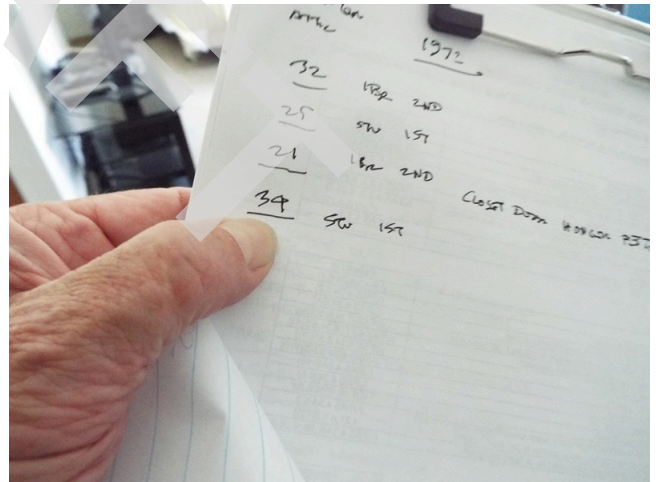 1972
32 1BR 2ND
25 STU 1ST
21 1BR 2ND
CLOSET DOOR
34 STU 1ST